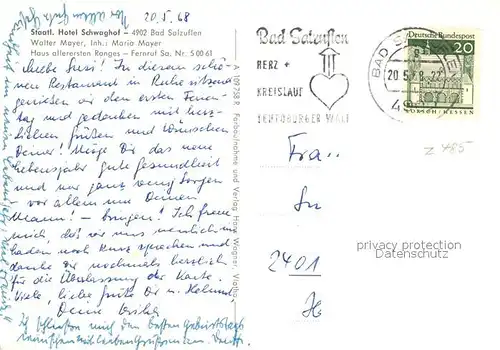 20.5.68
Staatl. Hotel Schwaghof – 4902 Bad Salzuflen
Walter Mayer, Inh.: Maria Mayer
Haus allerersten Ranges – Fernruf Sa. Nr. 5 00 61
Liebe Susi! In diesem schö-
nen Restaurant in Ruhe sitzend
genießen wir den ersten Ferien-
tag und gedenken mit herz-
lichen Grüßen und Wünschen
Deiner! Möge Dir das neue
Lebensjahr gute Gesundheit
und nur ganz wenig Sorgen
– vor allem um Deinen
Mann! – bringen! Ich freue
mich, daß wir uns neulich im
noch kurz sprechen und
danke Dir nochmals herzlich
für die Überlassung der Karte.
Viele, liebe Grüße Dir u. Helmut
Deine
Ich schließe mich den besten Geburtstags
wünschen mit lieben Grüßen an.
Farbaufnahme und Verlag Hans Wagner, Vlotho
Bad Salzuflen
HERZ +
KREISLAUF
TEUTOBURGER WALD
BAD SALZUFLEN
20.5.68
Deutsche Bundespost
20
LORSCH/HESSEN
Z 485
Frau.
In
2401
privacy protection
Datenschutz